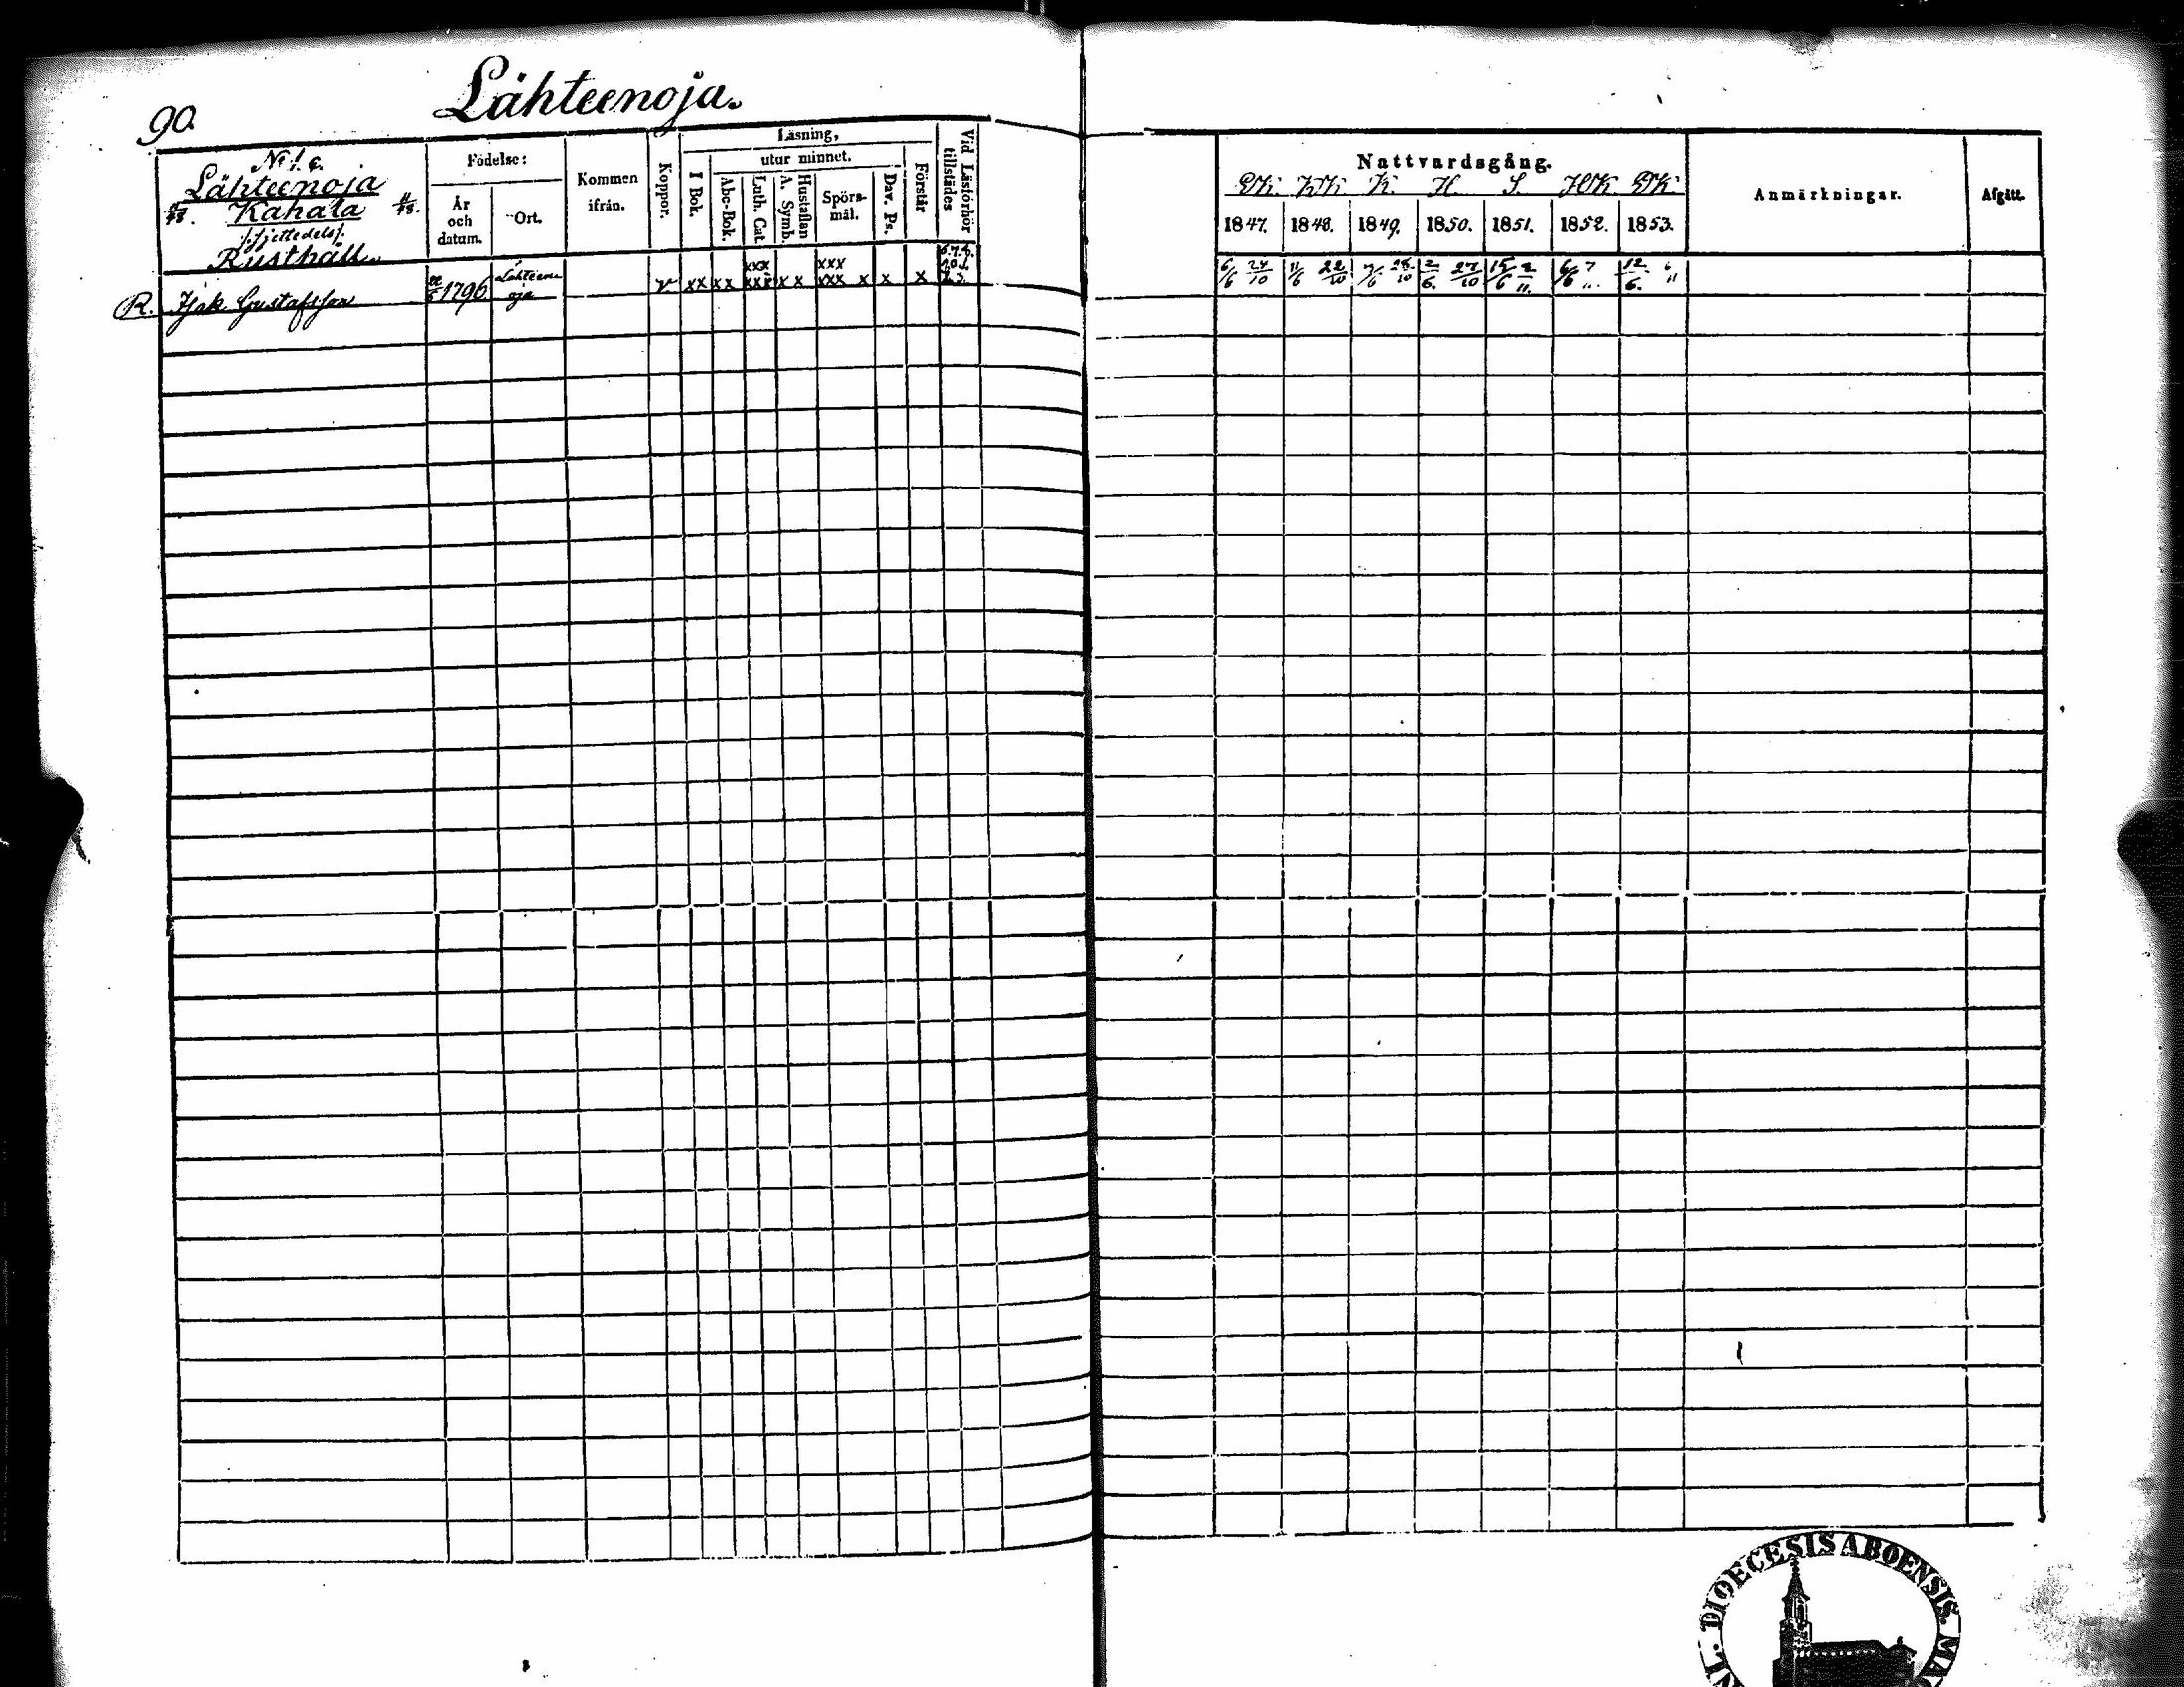 90.
Lähteenoja.
No 1. c.
Lähteenoja
Kahala
Rusthåll.
Födelse:
År och datum.
Ort.
Kommen ifrån.
Koppor.
Läsning,
I Bok.
utur minnet.
Abc-Bok.
Luth. Cat.
Hustaflan A. Symb.
Spörs-mål.
Dav. Ps.
Förstår
Vid Läsförhör tillstädes
R. Isak Gustafsson 1796. Lähteenoja v xx xx xxx xxx x x xxx xxx x x x
Nattvardsgång.
K. H. S.
1847. 1848. 1849. 1850. 1851. 1852. 1853.
Anmärkningar.
Afgått.
6/6 24/10 11/6 22/10 2/6 27/10 15/6 2/11. 6/6 7/11. 12/6. 6/11
DIOECESIS ABOENSIS.